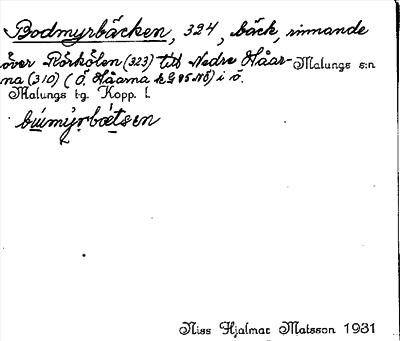 Bodmyrbäcken, 324, bäck, rinnande
över Rörkölen (323) till Nedre Håar-
na (310) (Ö. Håarna kG 95 NB) i ö.
Malungs s:n
Malungs tg. Kopp. l.
Niss Hjalmar Matsson 1931